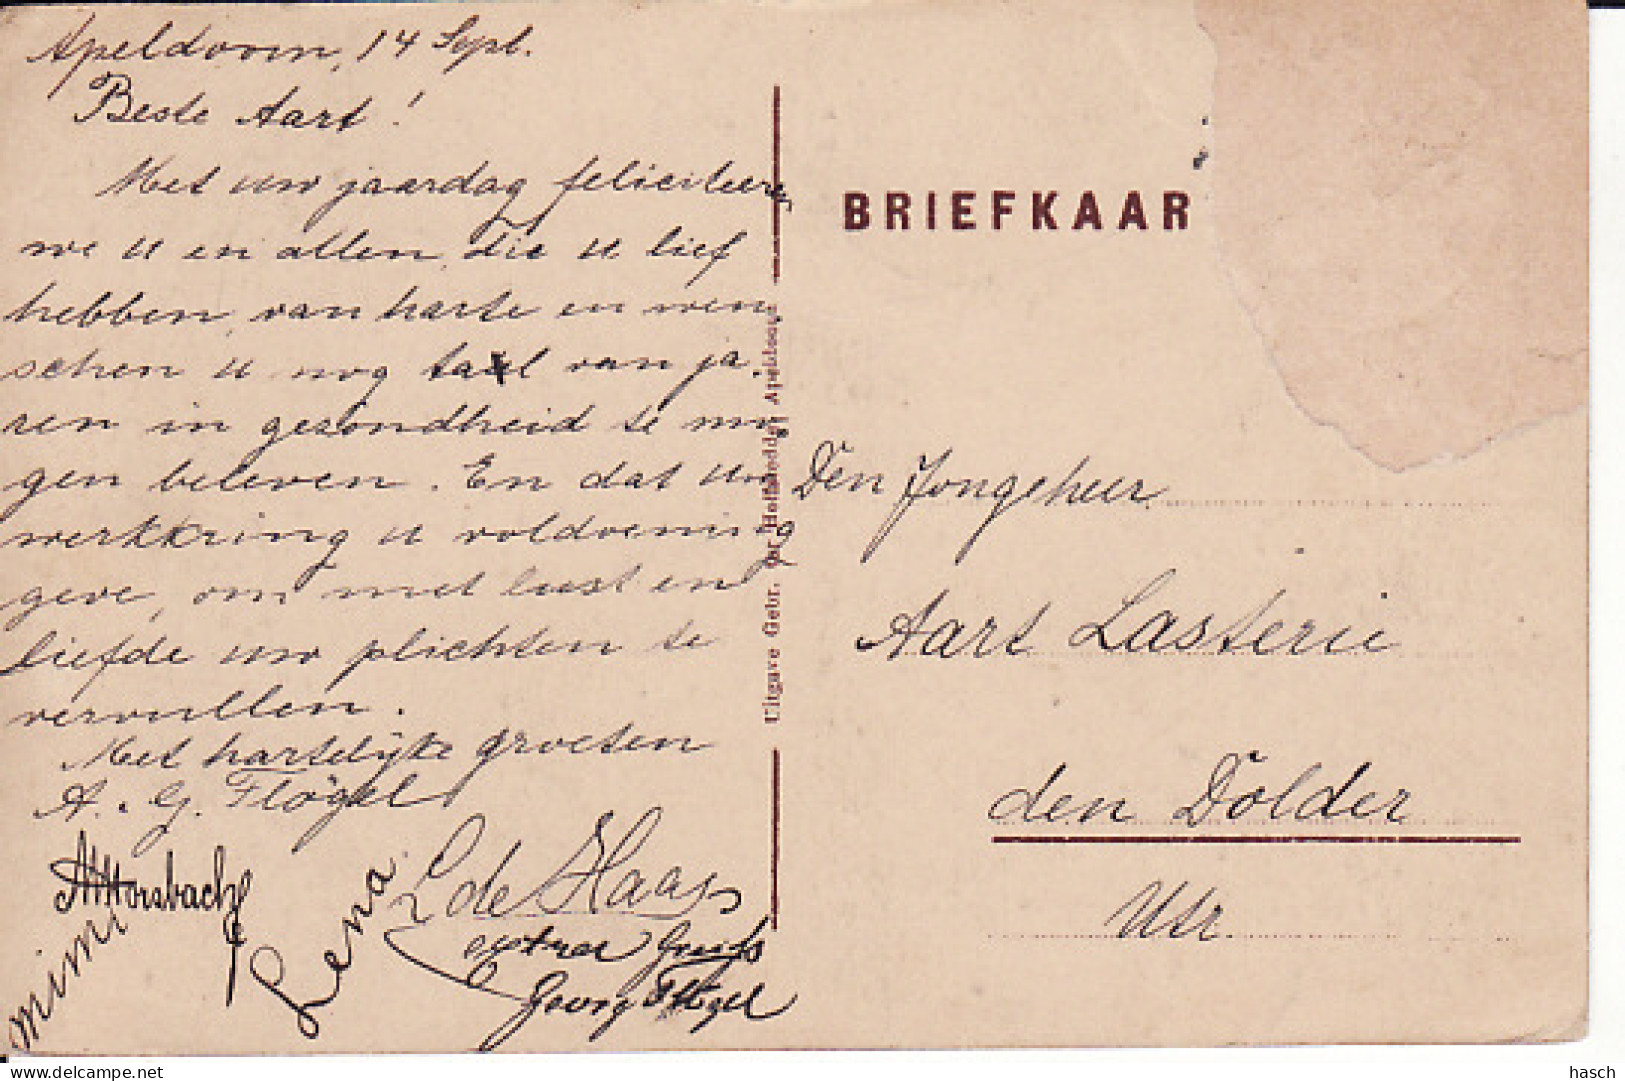 Apeldoorn, 14 Sept.
Beste Aart!
Met uw jaardag feliciteeren
we u en allen, die u lief
hebben, van harte en wen
schen u nog tal van ja.
ren in gezondheid te mo
gen beleven. En dat uw
werkkring u voldoening
geve, om met lust en
liefde uw plichten te
vervullen.
Met hartelijke groeten
A. G. Flögel
Horsbach
Mimi
Lena
L de Haas
Georg Flögel
Uitgave Gebr. Apeldoorn
BRIEFKAAR
Den Jongeheer
Aart Lasterie
den Dolder
Utr.
hasch